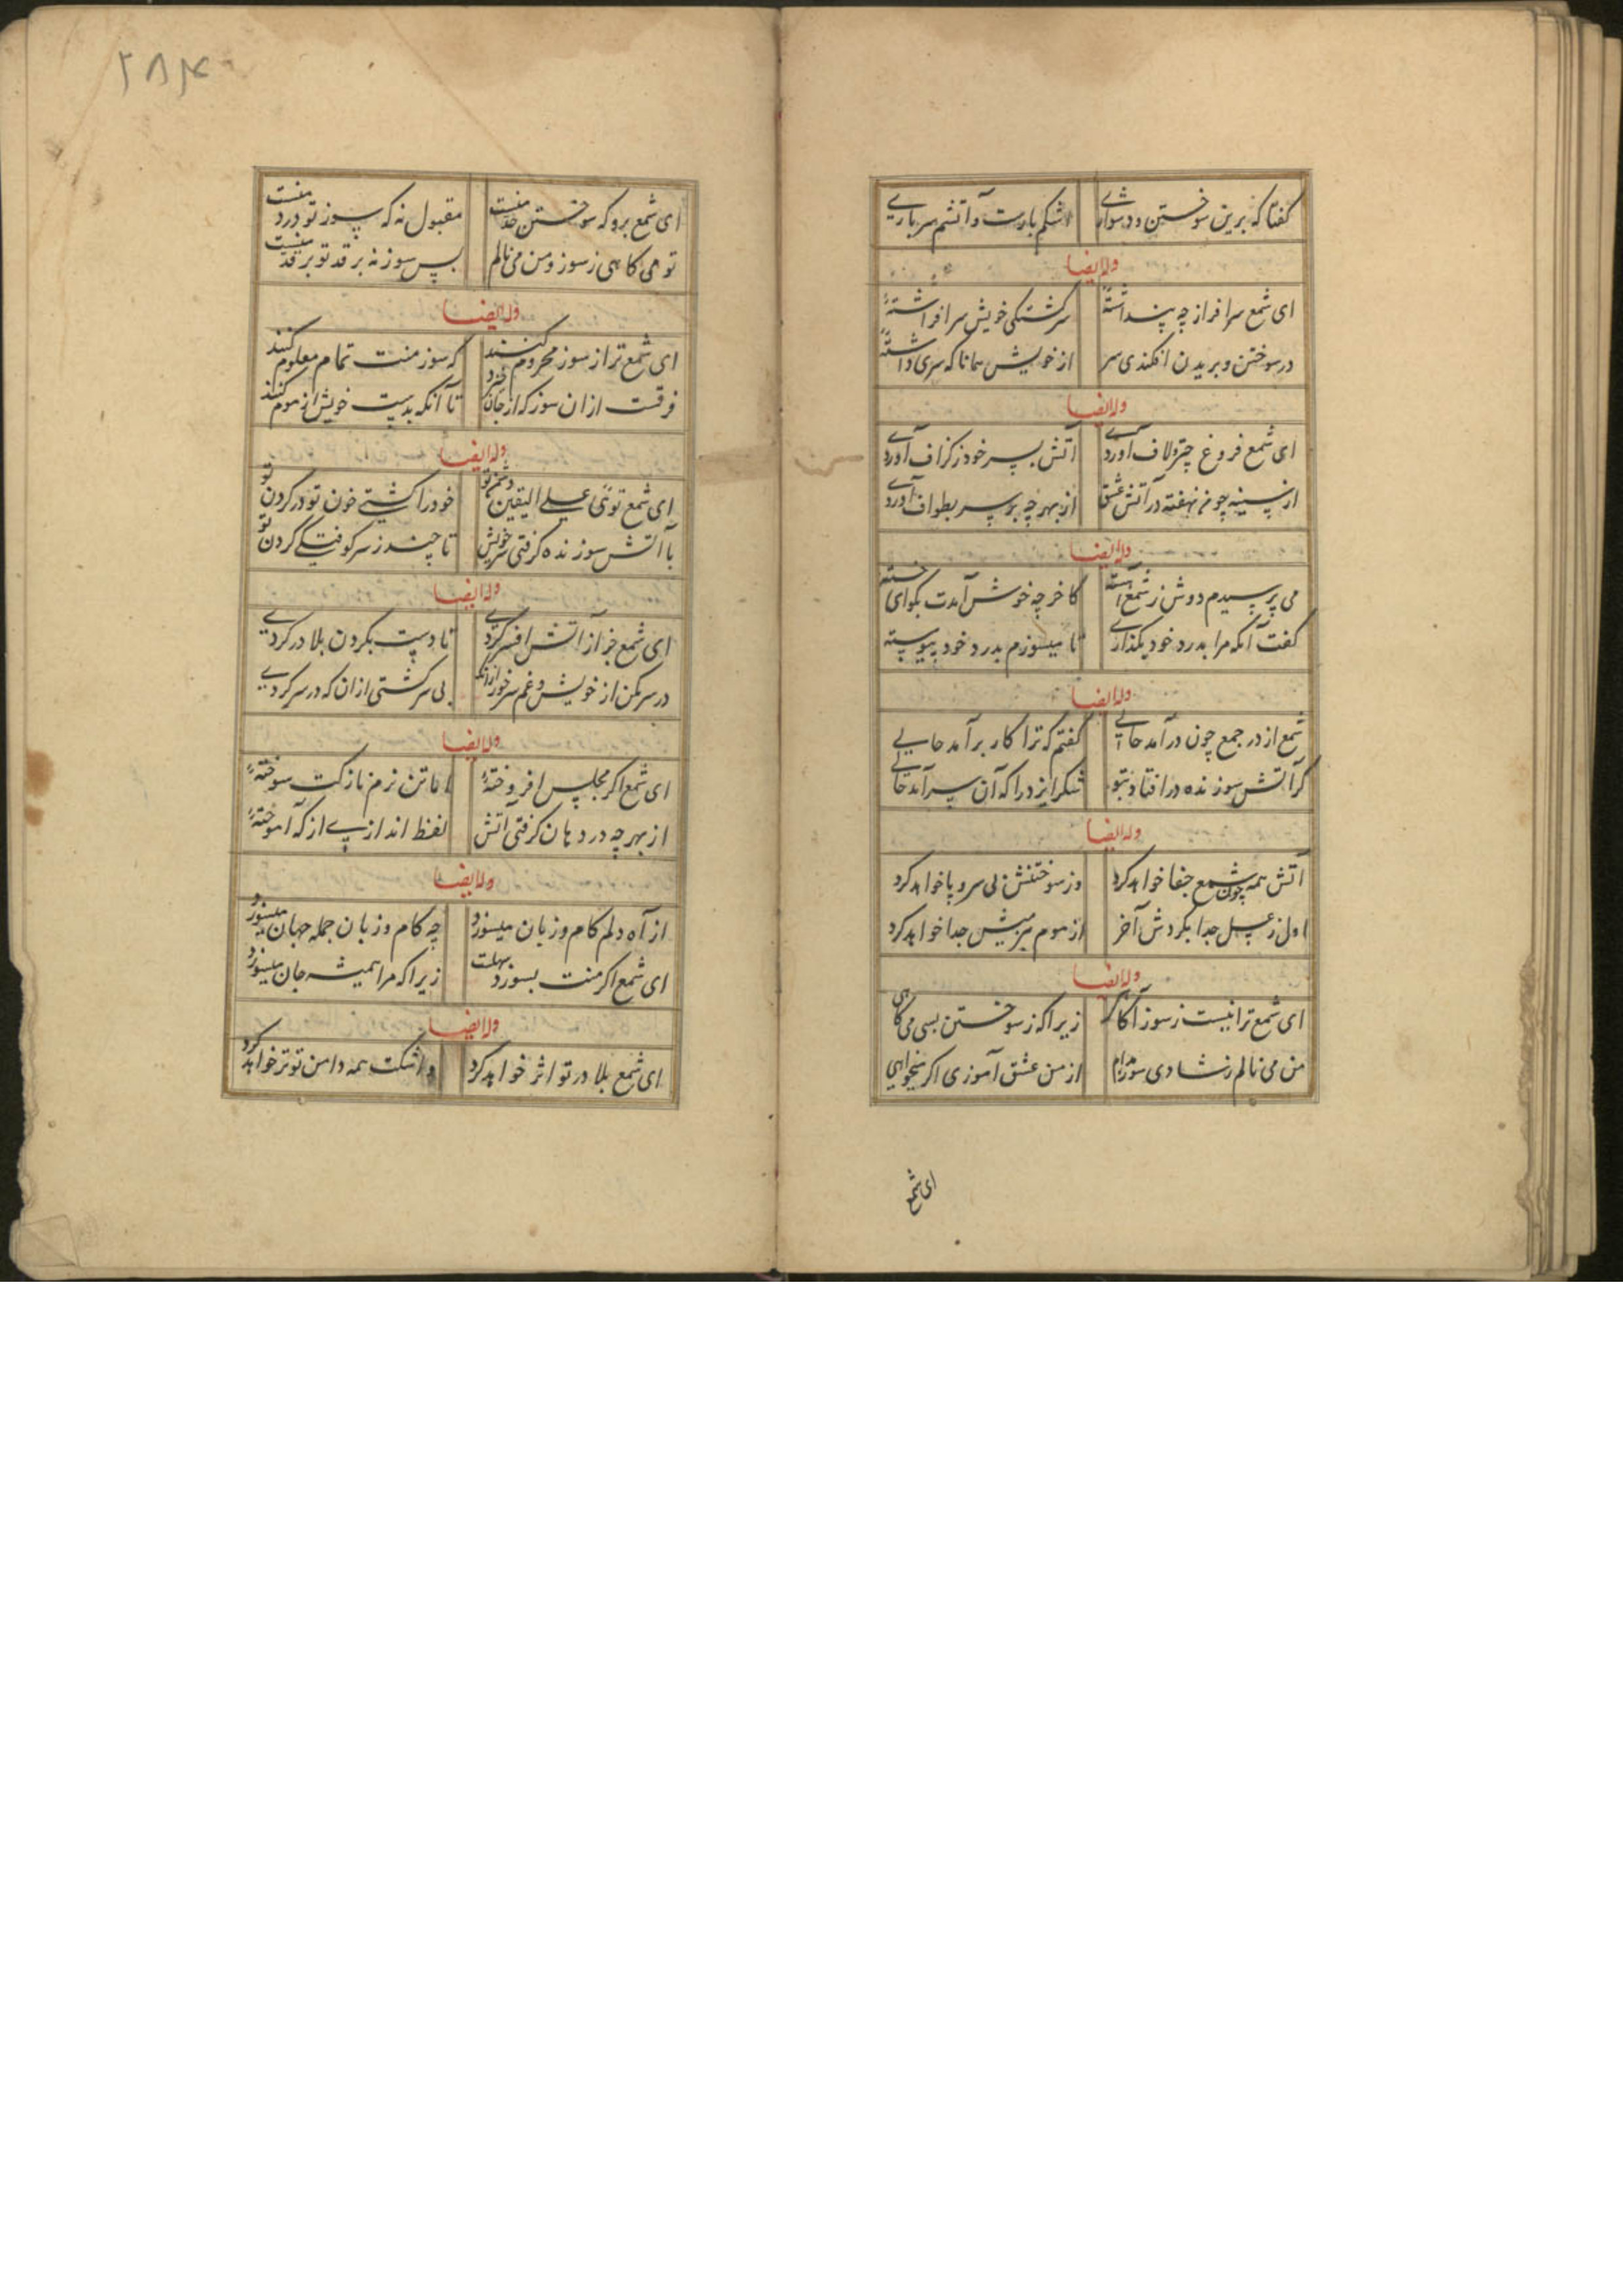 گفتا که برین سوختن و دشواری اشکم بارست و آتشم سر باری
وله ایضا
ای شمع سرافراز چه پنداشتهٔ سرگشتگی خویش سرافراشتهٔ
در سوختن و بریدن افکندی سر از خویش همانا که سری داشتهٔ
وله ایضا
ای شمع فروغ چتر و لاف آوردی آتش بسر خود ز گزاف آوردی
از سینه چو من نهفته در آتش عشق از بهر چه بر سر بطواف آوردی
وله ایضا
می پرسیدم دوش ز شمع آهسته کاخر چه خوش آمدت بگو ای خسته
گفت آنکه مرا بدرد خود بگذاری تا میسوزم بدرد خود پیوسته
وله ایضا
شمع از در جمع چون درآمد حالی گفتم که ترا کار برآمد حالی
گر آتش سوزنده در افتاد بتو شکر ایزد را که آن سرآمد حالی
وله ایضا
آتش همه چون شمع جفا خواهد کرد وز سوختنش بی سر و پا خواهد کرد
اول ز عسل جدا بکردش آخر از موم سرمیش جدا خواهد کرد
وله ایضا
ای شمع ترا نیست ز سوز آگاهی زیرا که ز سوختن بسی می کاهی
من می نالم ز شادی سوز مدام از من عشق آموزی اگر میخواهی
ای شمع
۲۸۴
ای شمع برو که سوختن حد منست مقبول نه که سوز تو درد منست
تو می کاهی ز سوز و من می نالم پس سوز نه بر قد تو بر قد منست
وله ایضا
ای شمع ترا ز سوز محروم کنند که سوز منت تمام معلوم کنند
فرقست از ان سوز که از جان خیزد تا آنکه بدست خویش از موم کنند
وله ایضا
ای شمع توئی علی الیقین دشمن تو خود را کشتی خون تو در گردن تو
با آتش سوزنده گرفتی سر خویش تا چند ز سر کوفتگی کردن تو
وله ایضا
ای شمع جز از آتش افسر کردی تا دست بگردن بلا در کردی
در سر مکن از خویش و غم سر خور از آنک بی سر گشتی از ان که در سر کردی
وله ایضا
ای شمع اگر مجلس افروختهٔ اما تن نرم نازکت سوختهٔ
از بهر چه در دهان گرفتی آتش لفظ اندازی از که آموختهٔ
وله ایضا
از آه دلم کام و زبان میسوزد چه کام و زبان جمله جهان میسوزد
ای شمع اگر منت بسوزد سهلست زیرا که مرا همیشه جان میسوزد
وله ایضا
ای شمع بلا در تو اثر خواهد کرد و اشکت همه دامن تو تر خواهد کرد